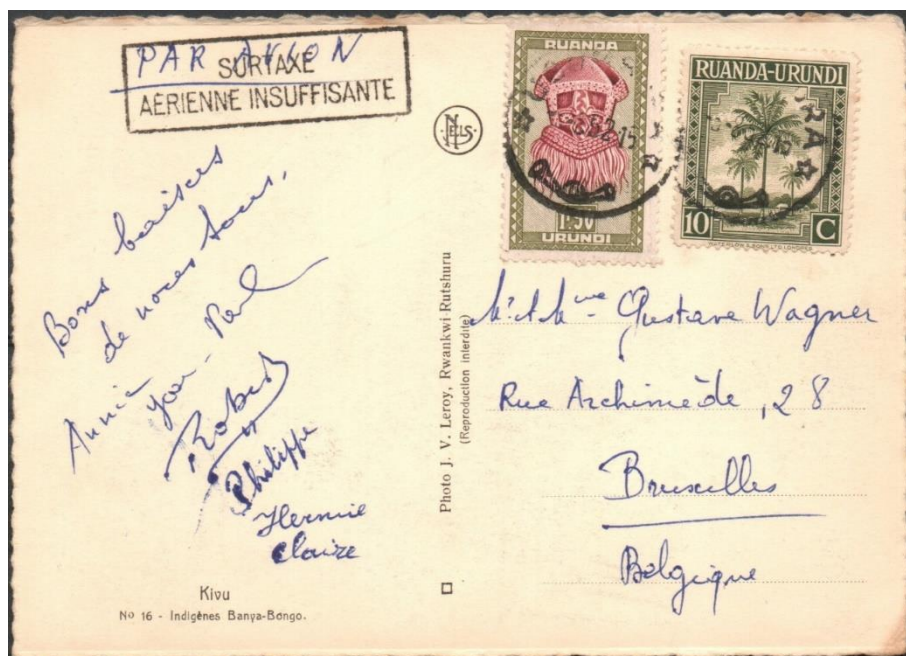 PAR AVION
SURTAXE
AÉRIENNE INSUFFISANTE
NELS
RUANDA
1.50
URUNDI
RUANDA-URUNDI
10 C
Bons baisers
de nous tous,
Annie
Robert
Philippe
Hermine
Claire
Photo J. V. Leroy, Rwankwi Rutshuru
(Reproduction interdite)
Mr & Mme Gustave Wagner
Rue Archimède, 28
Bruxelles
Belgique
Kivu
No 16 - Indigènes Banya-Bongo.